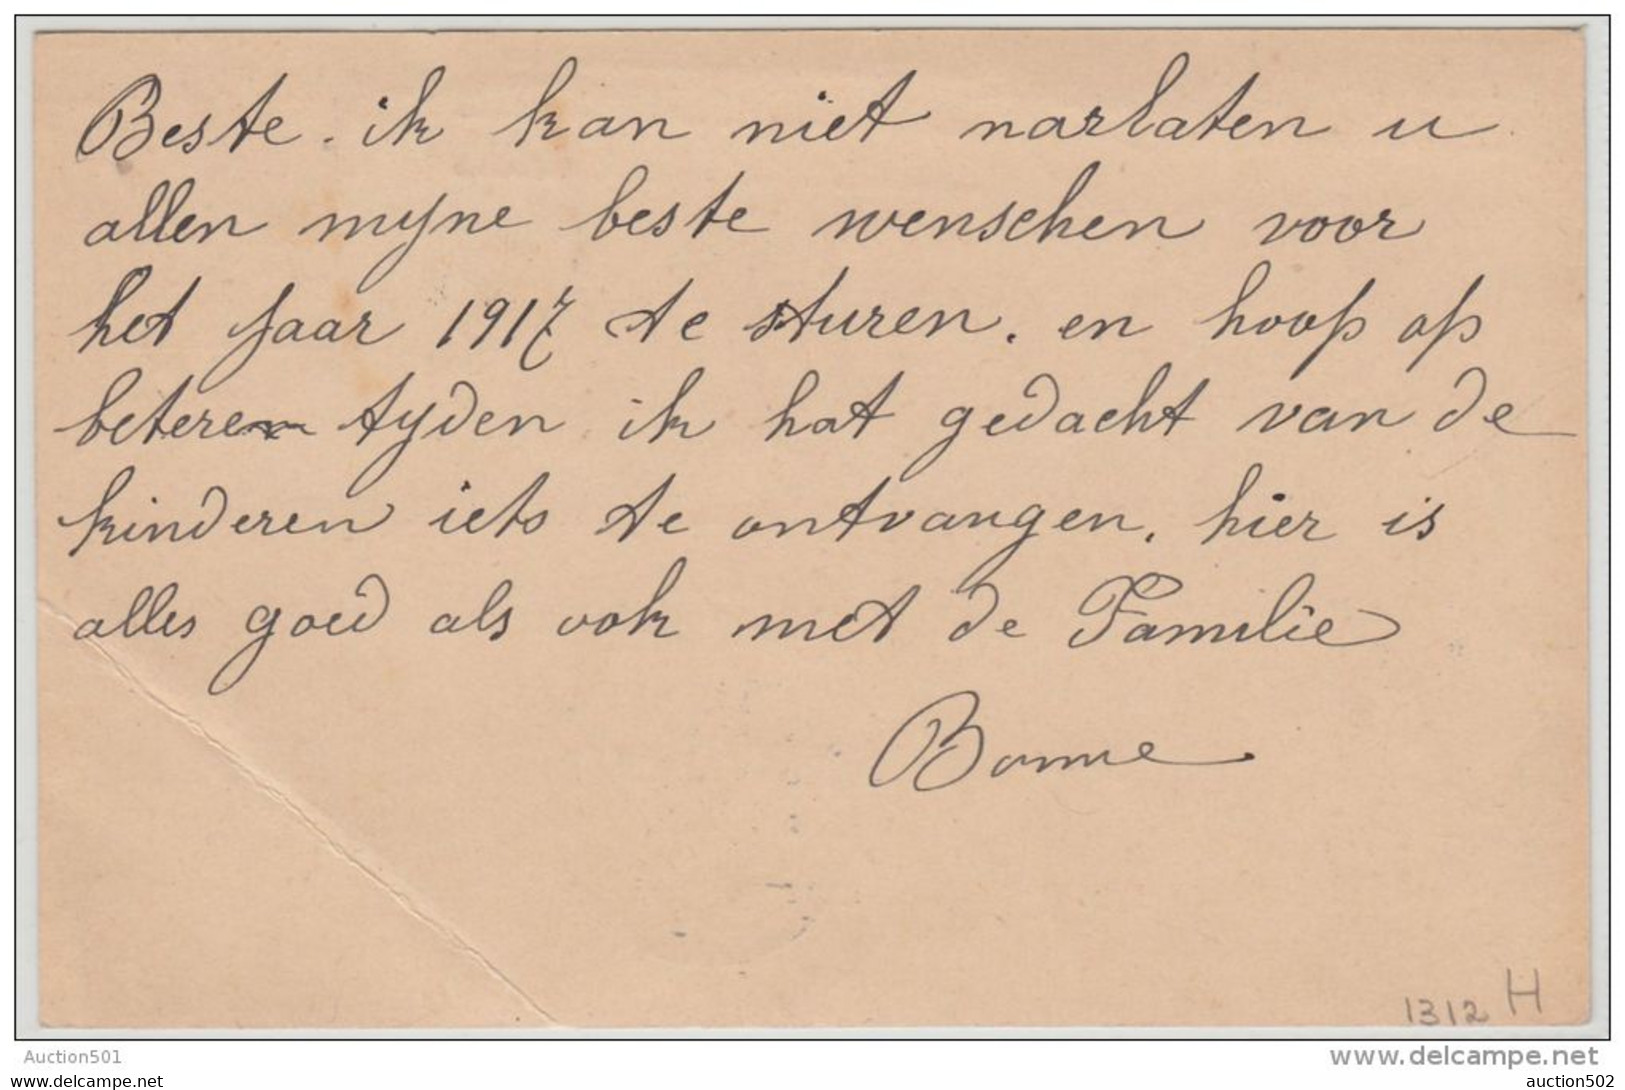 Beste. ik kan niet narlaten u
allen mijne beste wenschen voor
het Jaar 1917 te sturen. en hoop op
beteren tyden ik hat gedacht van de
kinderen iets te ontvangen. hier is
alles goed als ook met de Familie
Bonne
1312 H
Auction501
www.delcampe.net
auction501
auction502